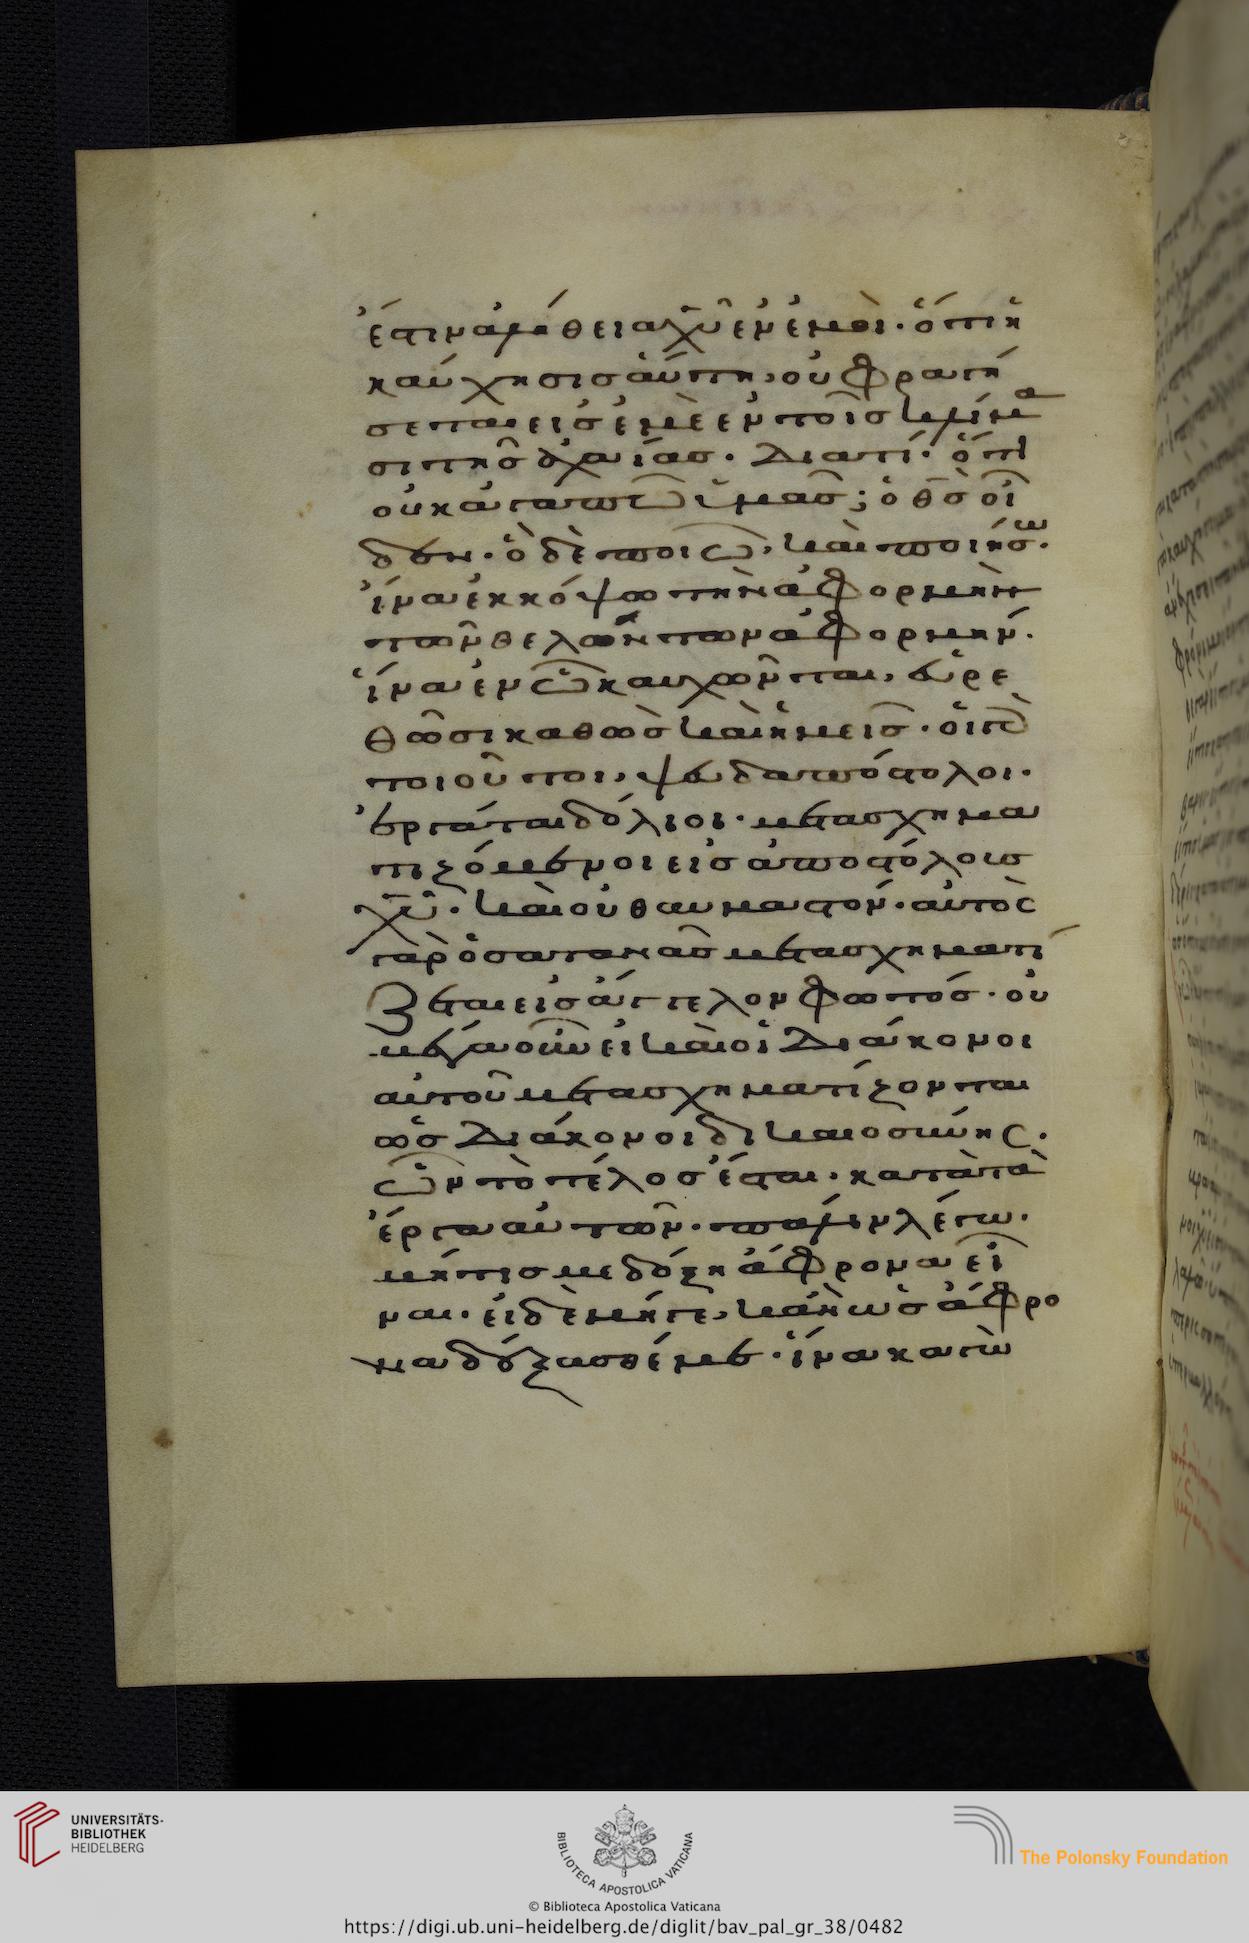 ἔστιν ἀλήθεια χῦ ἐν ἐμοὶ· ὅτι ἡ
καύχησις ἁύτη, οὐ φραγή
σεται εἰς ἐμὲ ἐν τοῖς κλίμα
σι τῆς ἀχαίας· διατί· ὅτι
οὐκ ἀγαπῶ ὑμᾶς; ὁ θς οἶ
δεν· ὃ δὲ ποιῶ, καὶ ποιήσω·
ἵνα ἐκκόψω τὴν ἀφορμὴν
τῶν θελόντων ἀφορμήν·
ἵνα ἐν ὧ καυχῶνται, εὑρε
θῶσι καθὼς καὶ ἡμεῖς· οἱ γὰρ
τοιοῦτοι, ψευδαπόστολοι·
ἐργάται δόλιοι· μετασχημα
τιζόμενοι εἰς ἀποστόλους
χῦ· καὶ οὐ θαυμαστόν· αὐτὸς
γὰρ ὁ σατανᾶς μετασχηματί
ζεται εἰς ἄγγελον φωτός· οὐ
μέγα οὖν εἰ καὶ οἱ διάκονοι
αὐτοῦ μετασχηματίζονται
ὡς διάκονοι δικαιοσύνης·
ὧν τὸ τέλος ἔσται, κατὰ τὰ
ἔργα αὐτῶν· πάλιν λέγω·
μήτις με δόξη ἄφρονα εἶ
ναι· εἰ δὲ μήγε, κἂν ὡς ἄφρο
να δέξασθέ με· ἵνα κἀγὼ
UNIVERSITÄTS-
BIBLIOTHEK
HEIDELBERG
BIBLIOTECA APOSTOLICA VATICANA
The Polonsky Foundation
© Biblioteca Apostolica Vaticana
https://digi.ub.uni-heidelberg.de/diglit/bav_pal_gr_38/0482